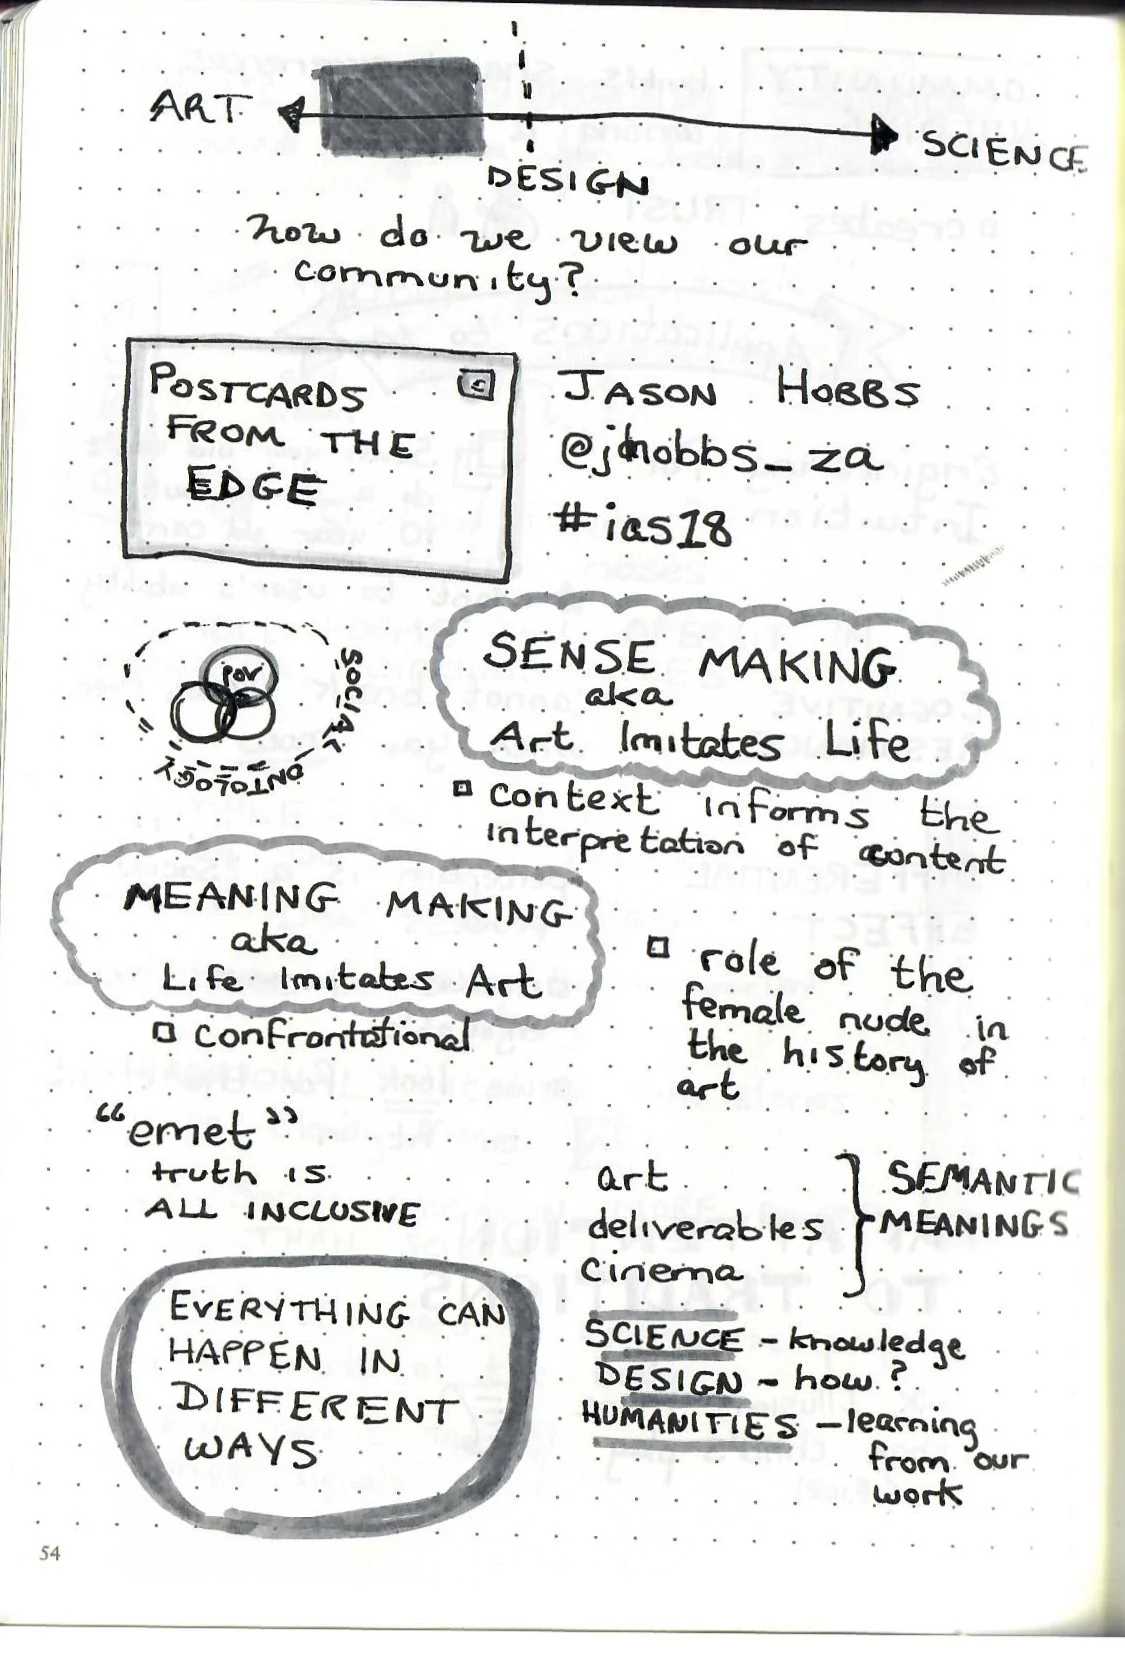 ART
SCIENCE
DESIGN
how do we view our
community?
POSTCARDS
FROM THE
EDGE
JASON HOBBS
@jhobbs_za
#ias18
pov
SOCIAL
ONTOLOGY
SENSE MAKING
aka
Art Imitates Life
context informs the
interpretation of content
MEANING MAKING
aka
Life Imitates Art
confrontational
role of the
female nude in
the history of
art
"emet"
truth is
ALL INCLUSIVE
art
deliverables
cinema
SEMANTIC
MEANINGS
EVERYTHING CAN
HAPPEN IN
DIFFERENT
WAYS
SCIENCE – knowledge
DESIGN – how?
HUMANITIES – learning
from our
work
54